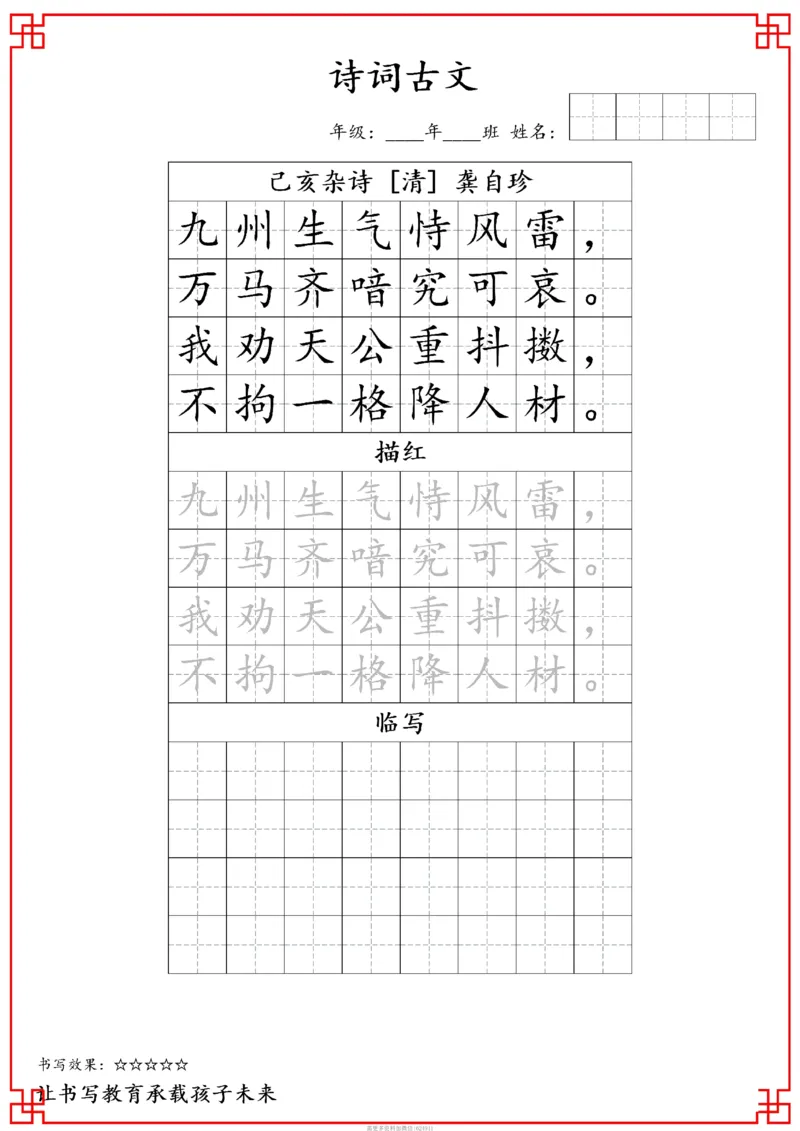 诗词古文
年级：____年____班 姓名：
己亥杂诗 [清] 龚自珍
九州生气恃风雷，
万马齐喑究可哀。
我劝天公重抖擞，
不拘一格降人材。
描红
九州生气恃风雷，
万马齐喑究可哀。
我劝天公重抖擞，
不拘一格降人材。
临写
书写效果：☆☆☆☆☆
让书写教育承载孩子未来